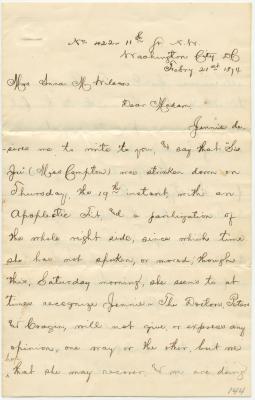 No 422- 11th St N.W.
Washington City DC
Febry 21st 1874
Mrs Anna M Wilson
Dear Madam.
Jennie de-
sires me to write to you, & say that "Sis
Jin" (Miss Compton) was stricken down on
Thursday, the 19th instant, with an
Apoplectic Fit, & a paralization of
the whole right side, since which time
she has not spoken, or moved; though
this, Saturday morning, she seems to at
times recognize Jennie. The Doctors,
& Cragin, will not give, or express any
opinion, one way or the other, but we
hope that she may recover, & we are doing
144